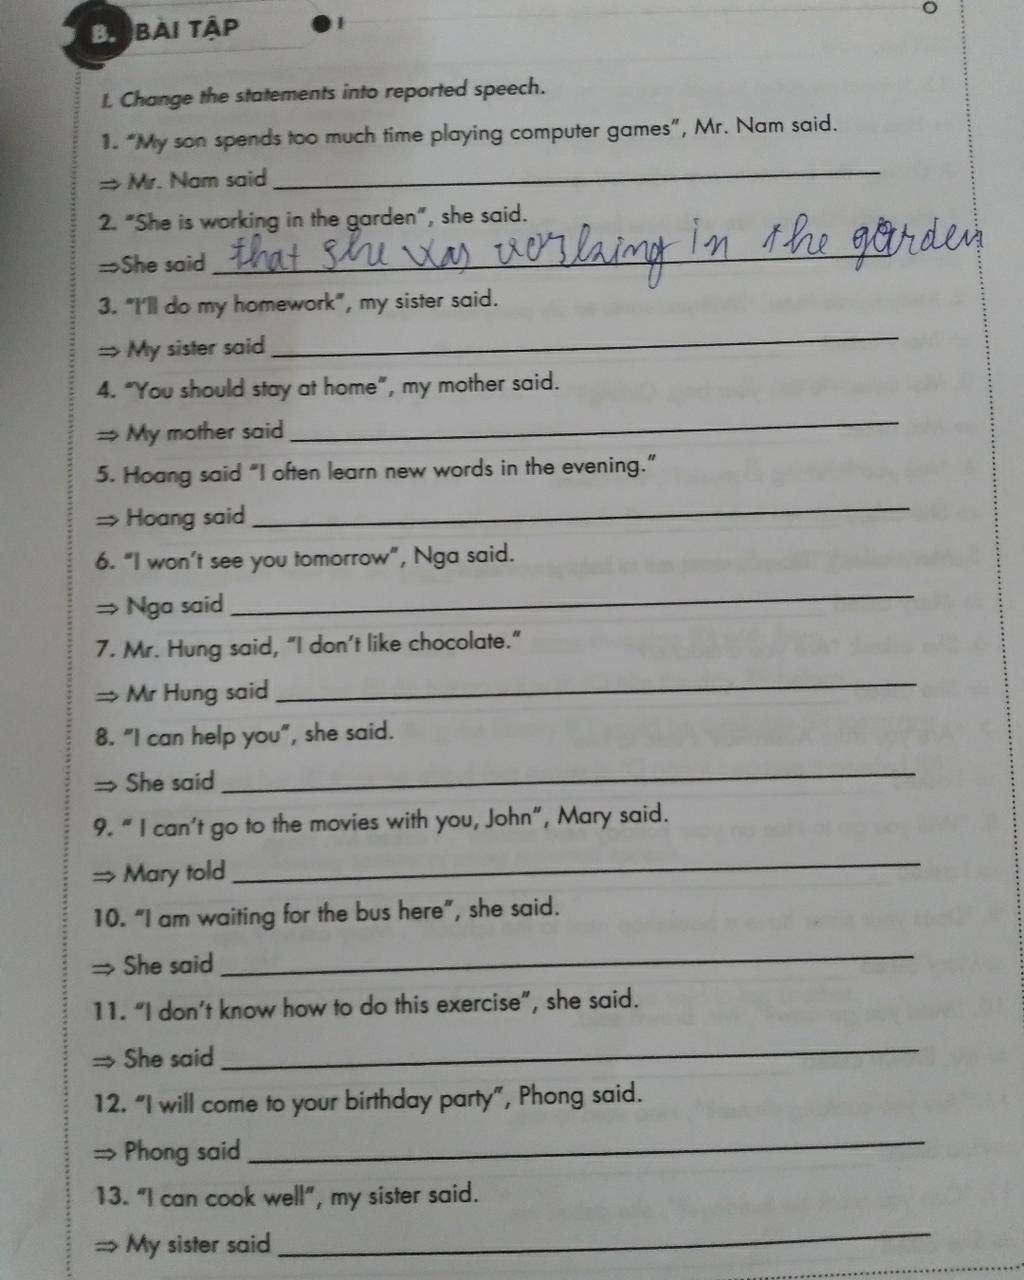 B. BÀI TẬP
I. Change the statements into reported speech.
1. "My son spends too much time playing computer games", Mr. Nam said.
⇒ Mr. Nam said
2. "She is working in the garden", she said.
⇒She said that she was working in the garden
3. "I'll do my homework", my sister said.
⇒ My sister said
4. "You should stay at home", my mother said.
⇒ My mother said
5. Hoang said "I often learn new words in the evening."
⇒ Hoang said
6. "I won't see you tomorrow", Nga said.
⇒ Nga said
7. Mr. Hung said, "I don't like chocolate."
⇒ Mr Hung said
8. "I can help you", she said.
⇒ She said
9. " I can't go to the movies with you, John", Mary said.
⇒ Mary told
10. "I am waiting for the bus here", she said.
⇒ She said
11. "I don't know how to do this exercise", she said.
⇒ She said
12. "I will come to your birthday party", Phong said.
⇒ Phong said
13. "I can cook well", my sister said.
⇒ My sister said